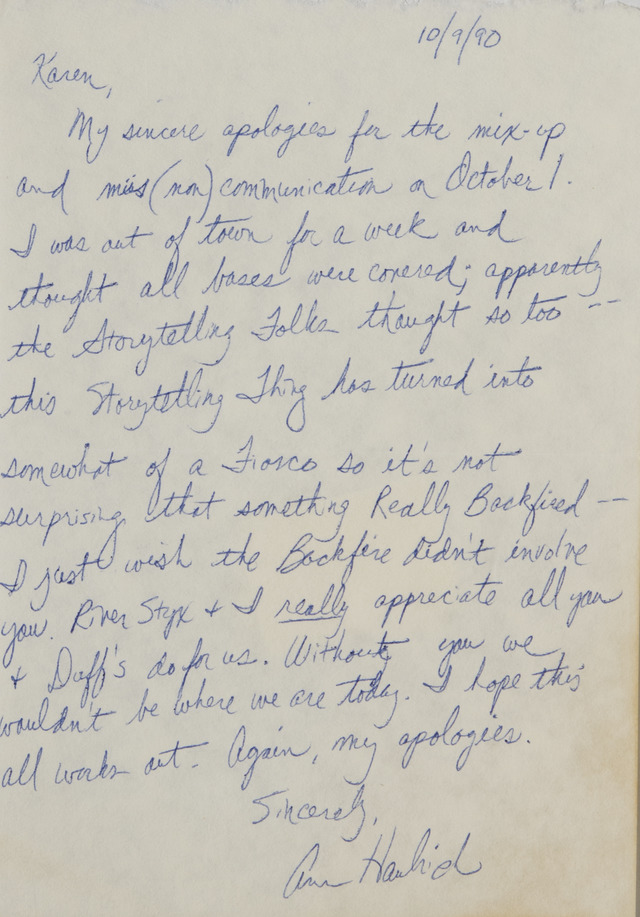 10/9/90
Karen,
My sincere apologies for the mix-up
and miss(non)communication on October 1.
I was out of town for a week and
thought all bases were covered; apparently
the Storytelling Folks thought so too --
this Storytelling Thing has turned into
somewhat of a Fiasco so it's not
surprising that something Really Backfired --
I just wish the Backfire didn't involve
you. River Styx + I really appreciate all you
+ Duff's do for us. Without you we
wouldn't be where we are today. I hope this
all works out. Again, my apologies.
Sincerely,
Ann